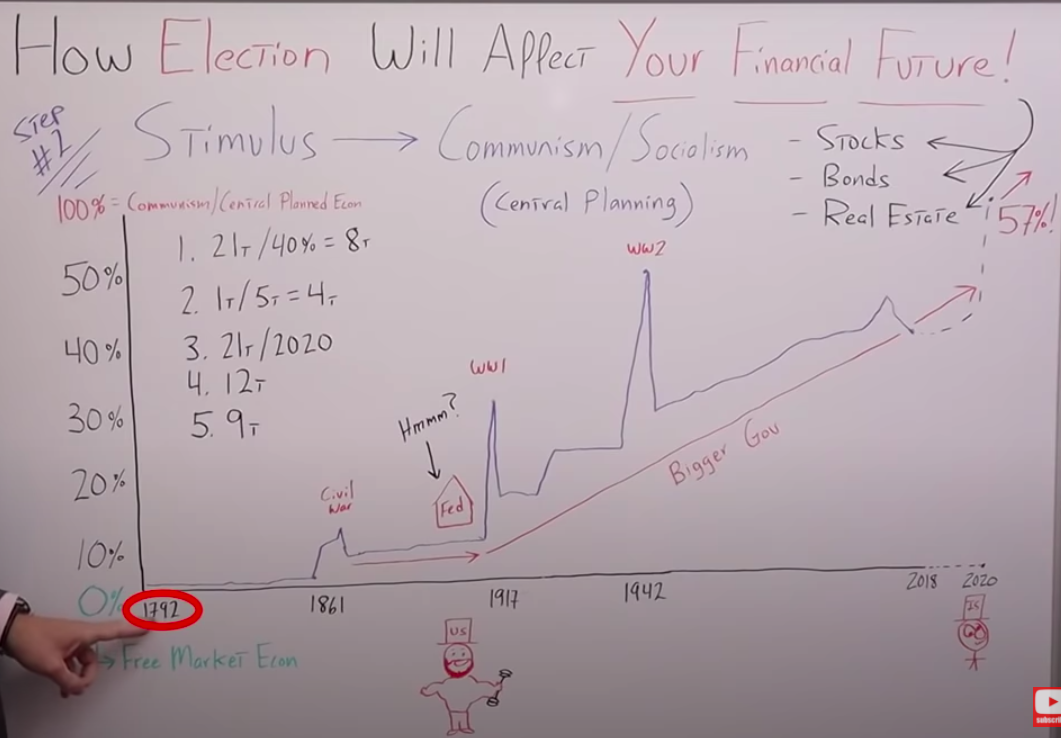 How Election Will Affect Your Financial Future!
Step
#2
Stimulus → Communism/Socialism
(Central Planning)
- Stocks
- Bonds
- Real Estate
57%!
100% = Communism/Central Planned Econ
50%
40%
30%
20%
10%
0%
1. 21T/40% = 8T
2. 1T/5T = 4T
3. 21T/2020
4. 12T
5. 9T
Civil
War
Hmmm?
Fed
WW1
WW2
Bigger Gov
1792
1861
1917
1942
2018
2020
→ Free Market Econ
US
subscri